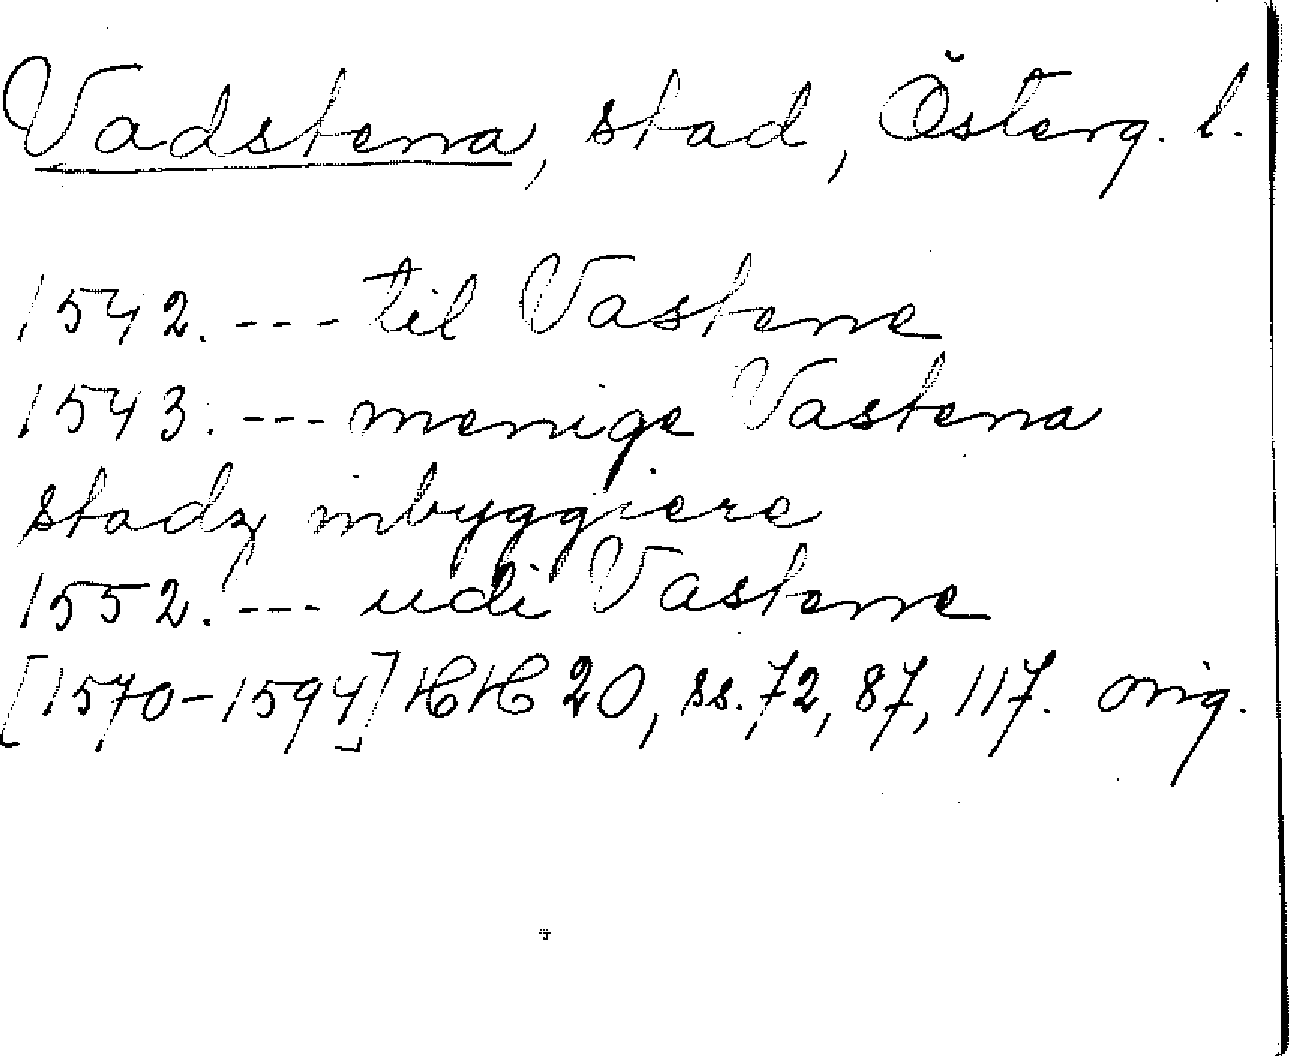 Vadstena, stad, Österg. l.
1542. --- til Vastene
1543. --- menige Vastena
stadz inbyggiere
1552. --- udi Vastene
[1570-1594] HH 20, ss. 72, 87, 117. orig.